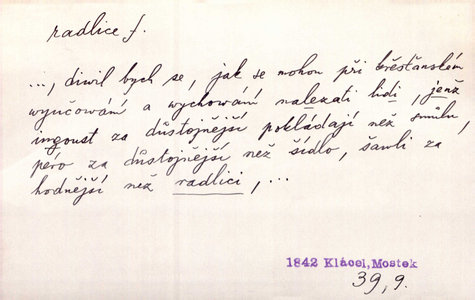 radlice f.
..., diwil bych se, jak se mohou při křesťanském
wyučowání a wychowání nalezati lidi, jenž
ingoust za důstojnější pokládají než smůlu,
péro za důstojnější než šídlo, šawli za
hodnější než radlici, ...
1842 Klácel, Mostek
39, 9.